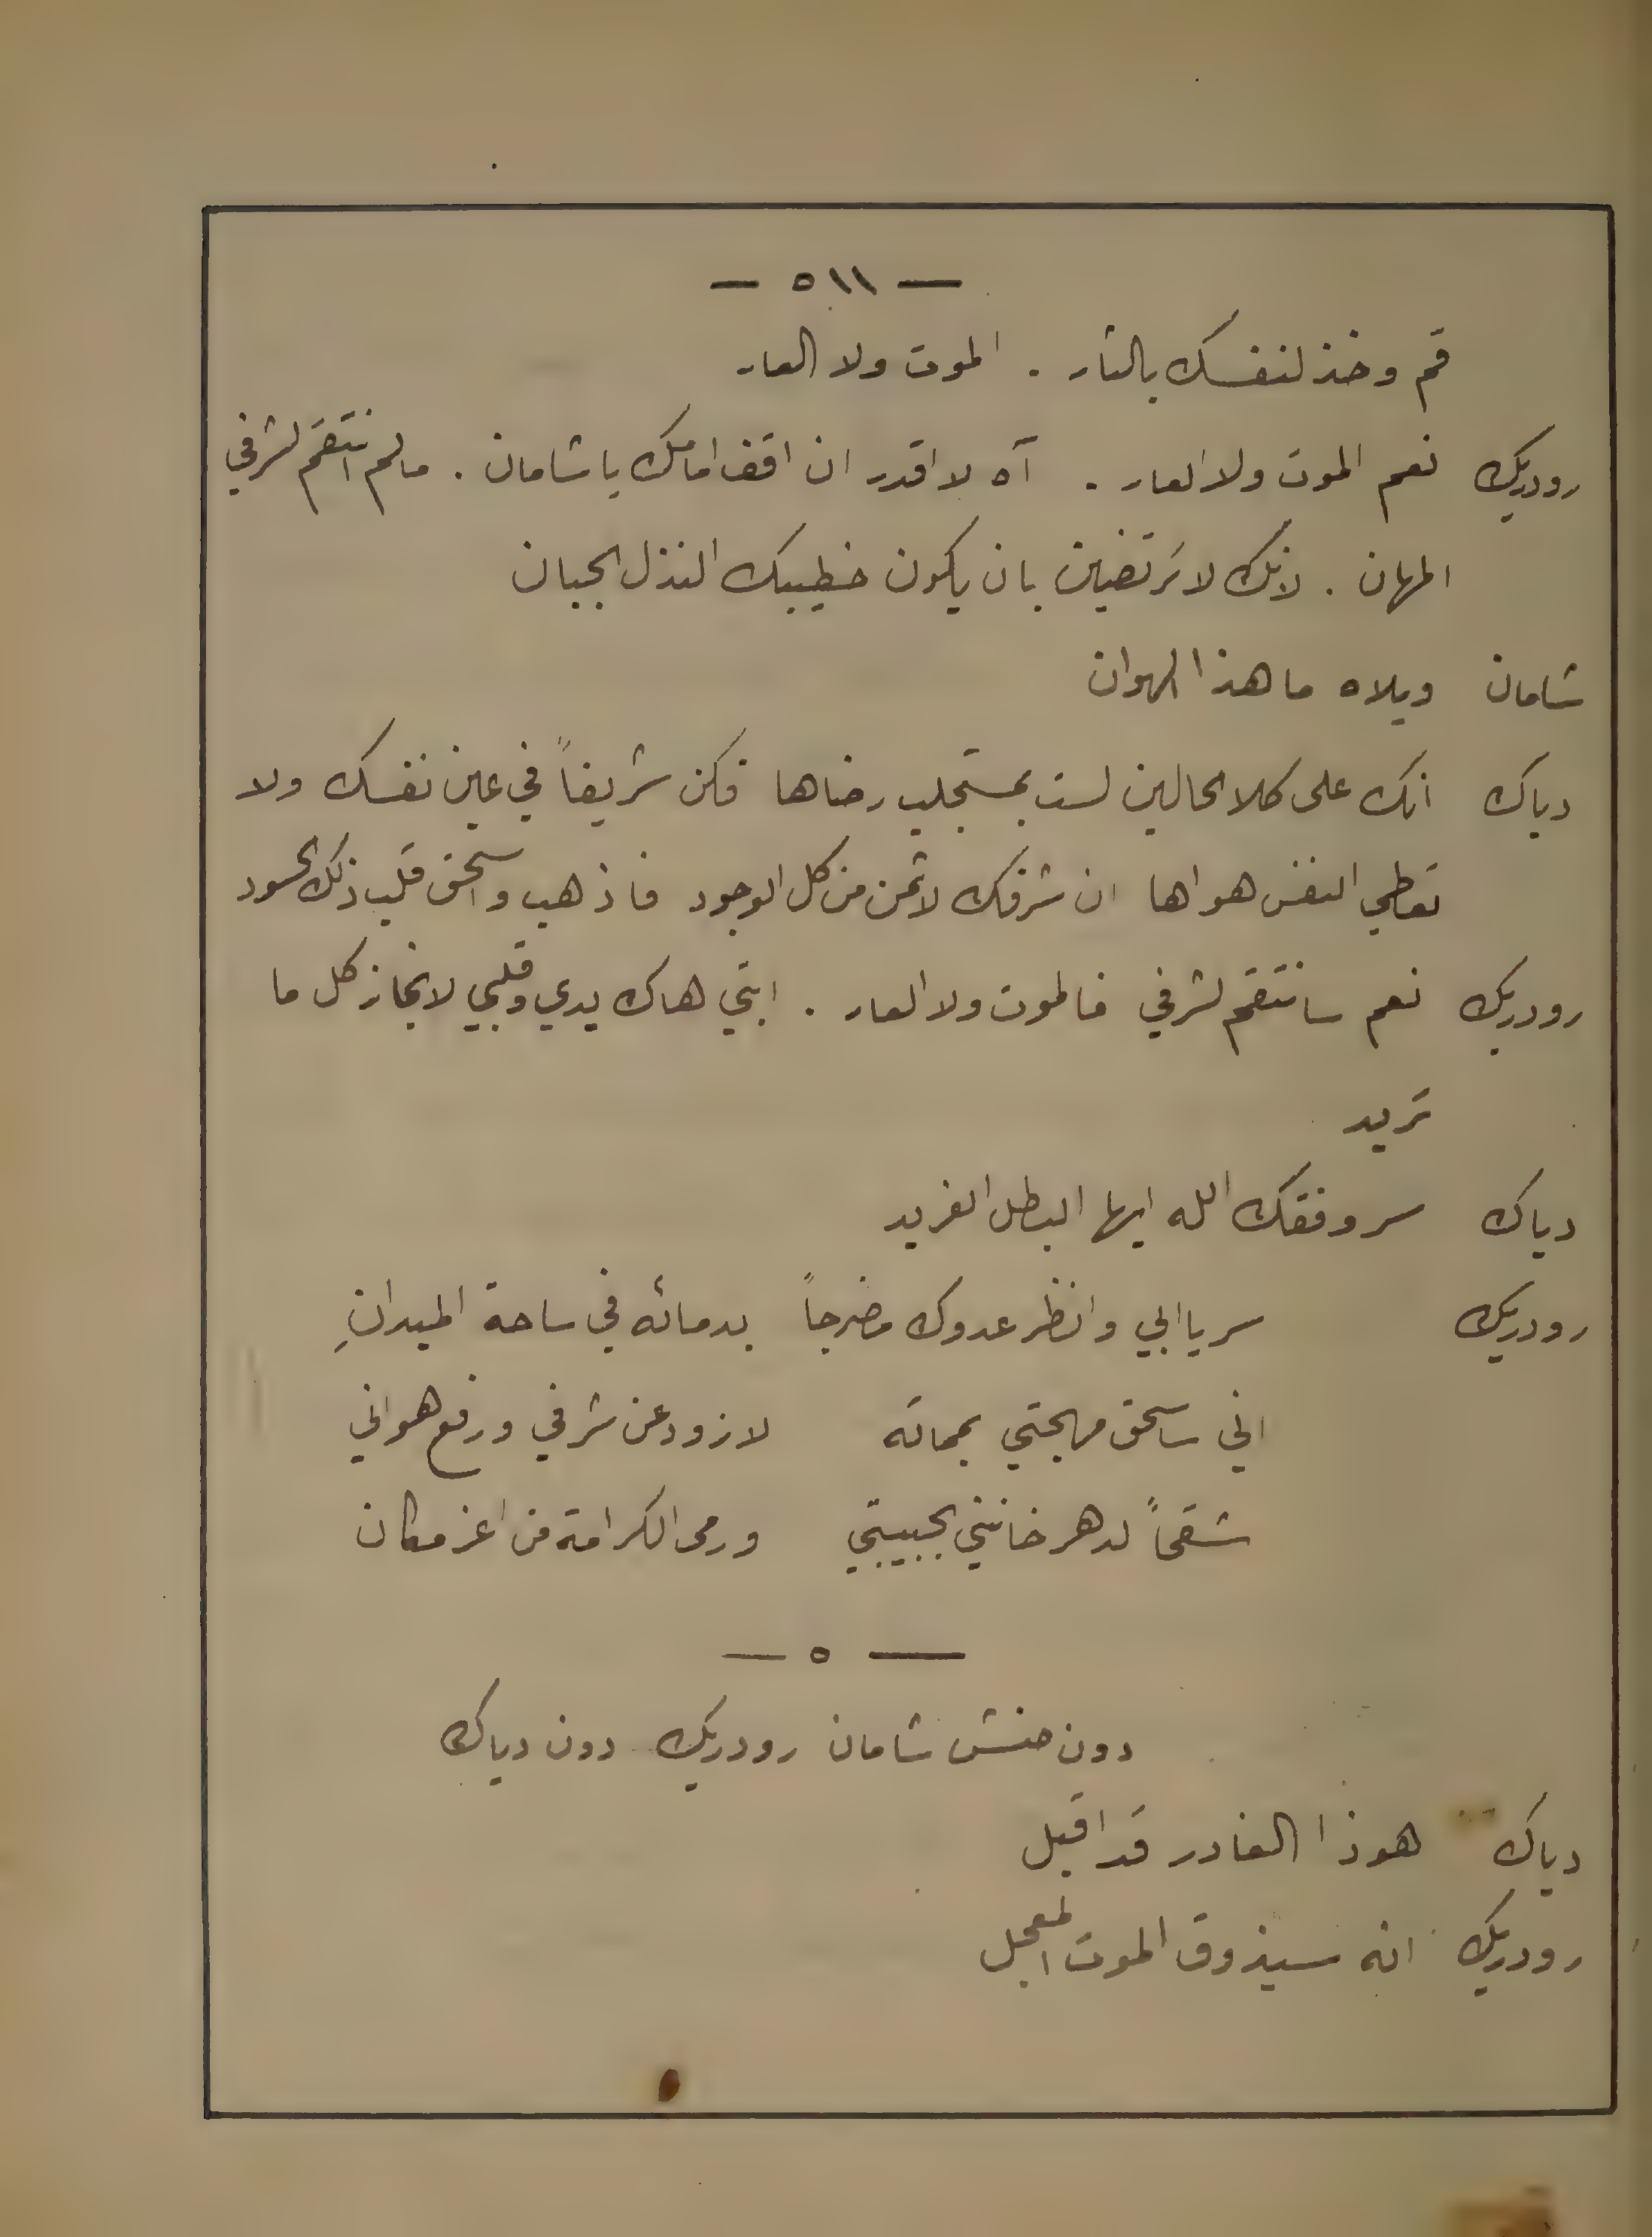 — ٥١١ —
قم وخذ لنفسك بالثار . الموت ولا العار
رودريك نعم الموت ولا العار . آه لا اقدر ان اقف امامك يا شامان . مالم انتقم لشرفي
المهان . لانك لا ترتضين بان يكون خطيبك النذل الجبان
شامان ويلاه ما هذا الهوان
دياك انك على كلا الحالين لست بمستجلب رضاها فكن شريفاً في عين نفسك ولا
تعطي النفس هواها ان شرفك لاثمن من كل الوجود فاذهب واسحق قلب ذلك الحسود
رودريك نعم سانتقم لشرفي فالموت ولا العار . ابتي هاك يدي وقلبي لانجاز كل ما
تريد
دياك سر وفقك الله ايها البطل الفريد
رودريك سر يا ابي وانظر عدوك مضرجاً بدمائه في ساحة الميدانِ
اني ساسحق مهجتي بمماته لازود عن شرفي ورفع هواني
شقحاً لدهر خانني بحبيبتي ورمى الكرامة من اعز مكان
— ٥ —
دون صنش شامان رودريك دون دياك
دياك هوذا الغادر قد اقبل
رودريك انه سيذوق الموت المعجل